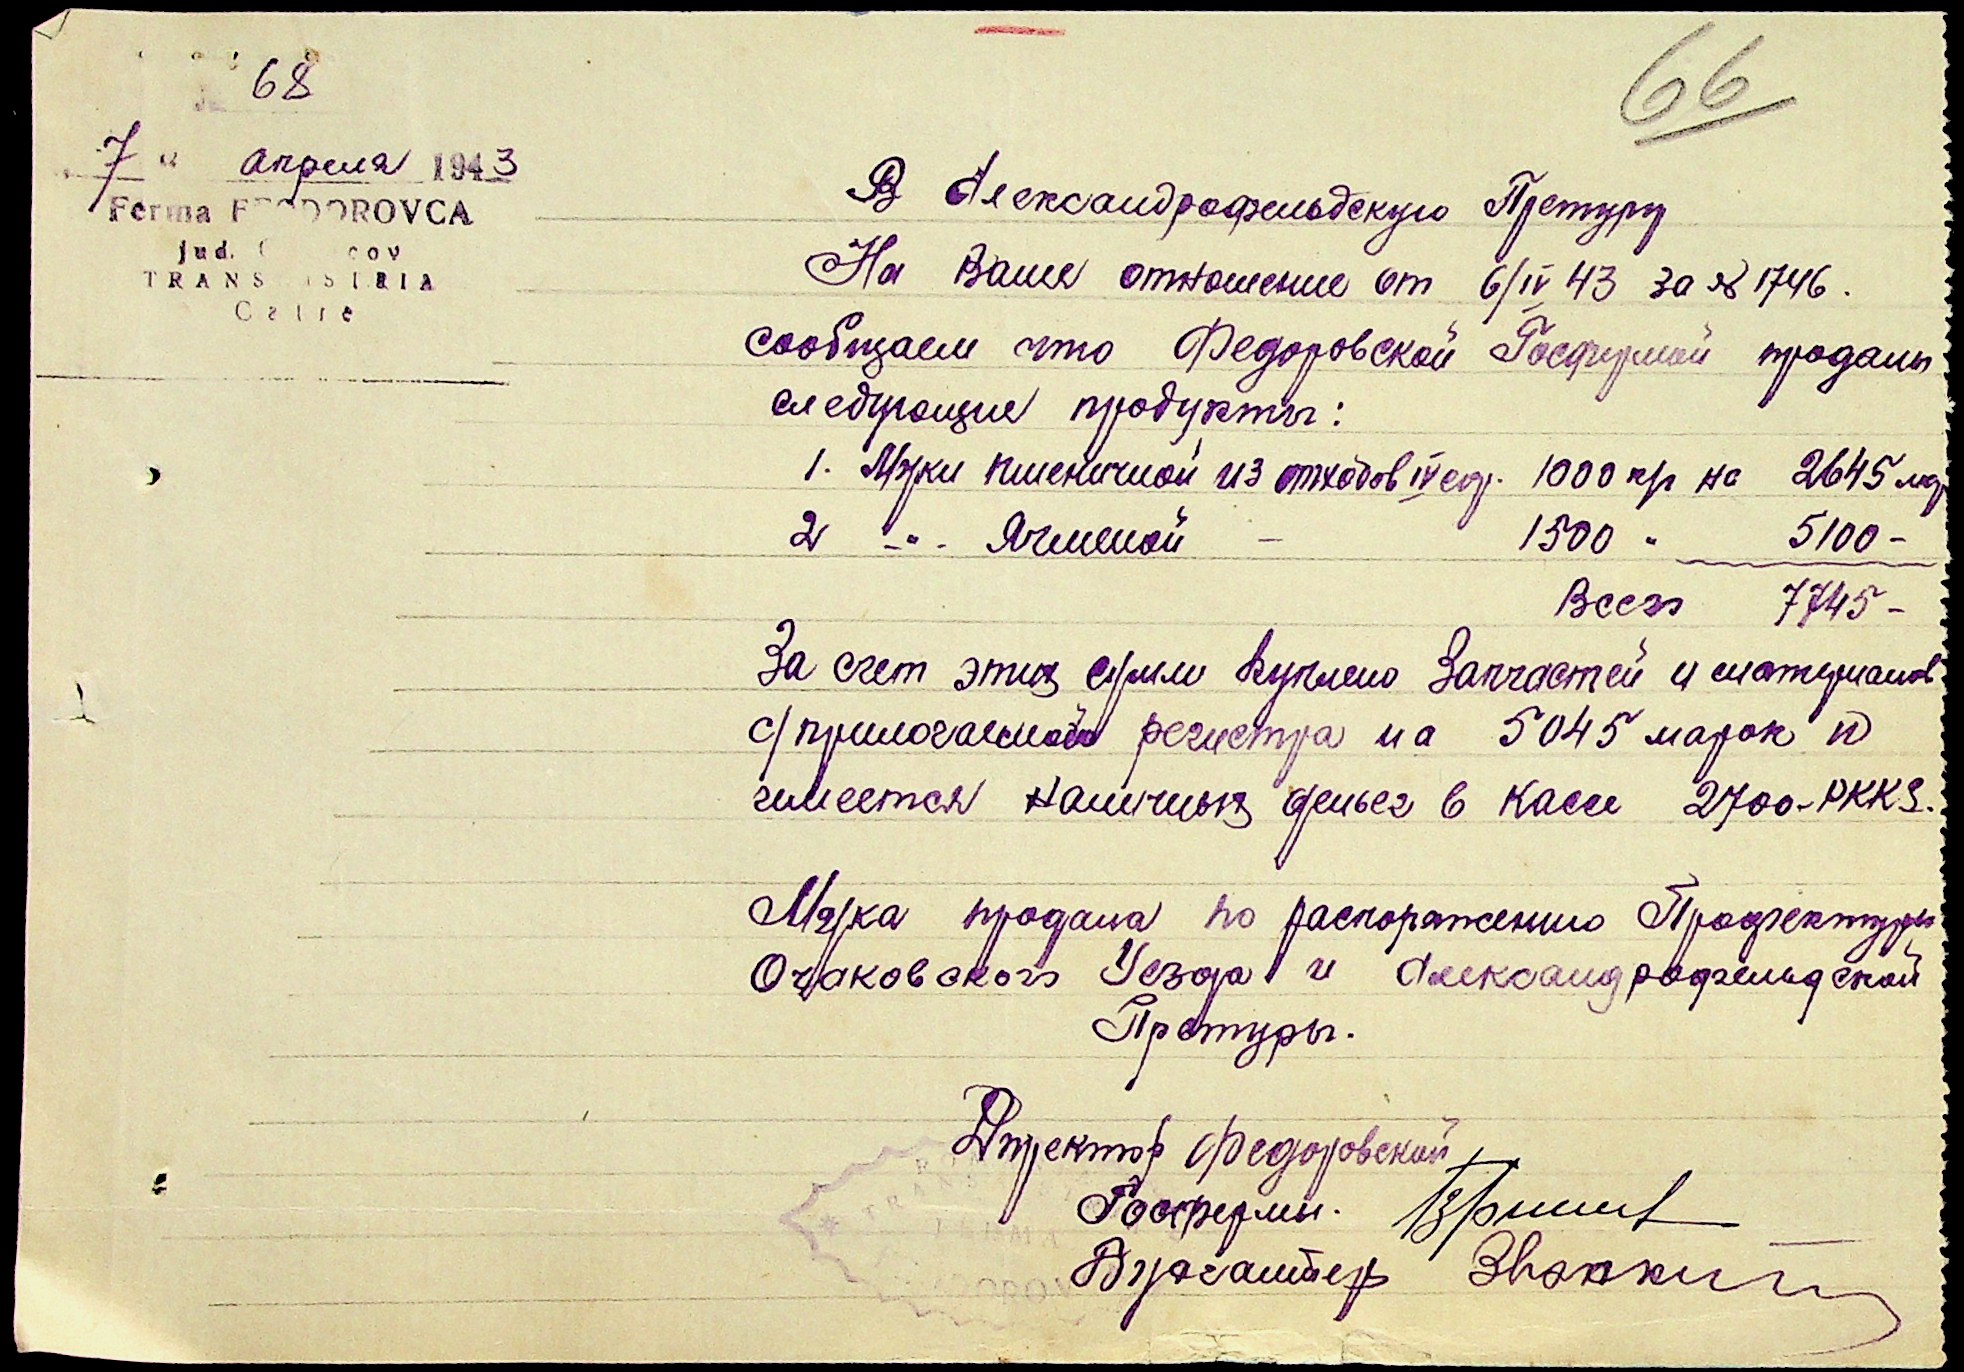 66
68
7 " апреля 1943
Ferma FEODOROVCA
jud. cov
TRANS ISTRIA
Catre
В Александрофельдскую Претуру
На Ваше отношение от 6/IV 43 за № 1746.
сообщаем что Федоровской Госфермой проданы
следующие продукты:
1. Муки пшеничной из отходов IV сор. 1000 кгр на 2645 мар
2 -"- Ячменой - 1500 " 5100-
Всего 7745-
За счет этих сумм куплено Запчастей и материалов
с/прилогаемого регистра на 5045 марок и
имеется наличных денег в кассе 2700-РККС.
Мука продана по распоряжению Профектуры
Очаковского Уезда и Александрофельдской
Претуры.
Директор Федоровской
Госфермы.
Бухгалтер